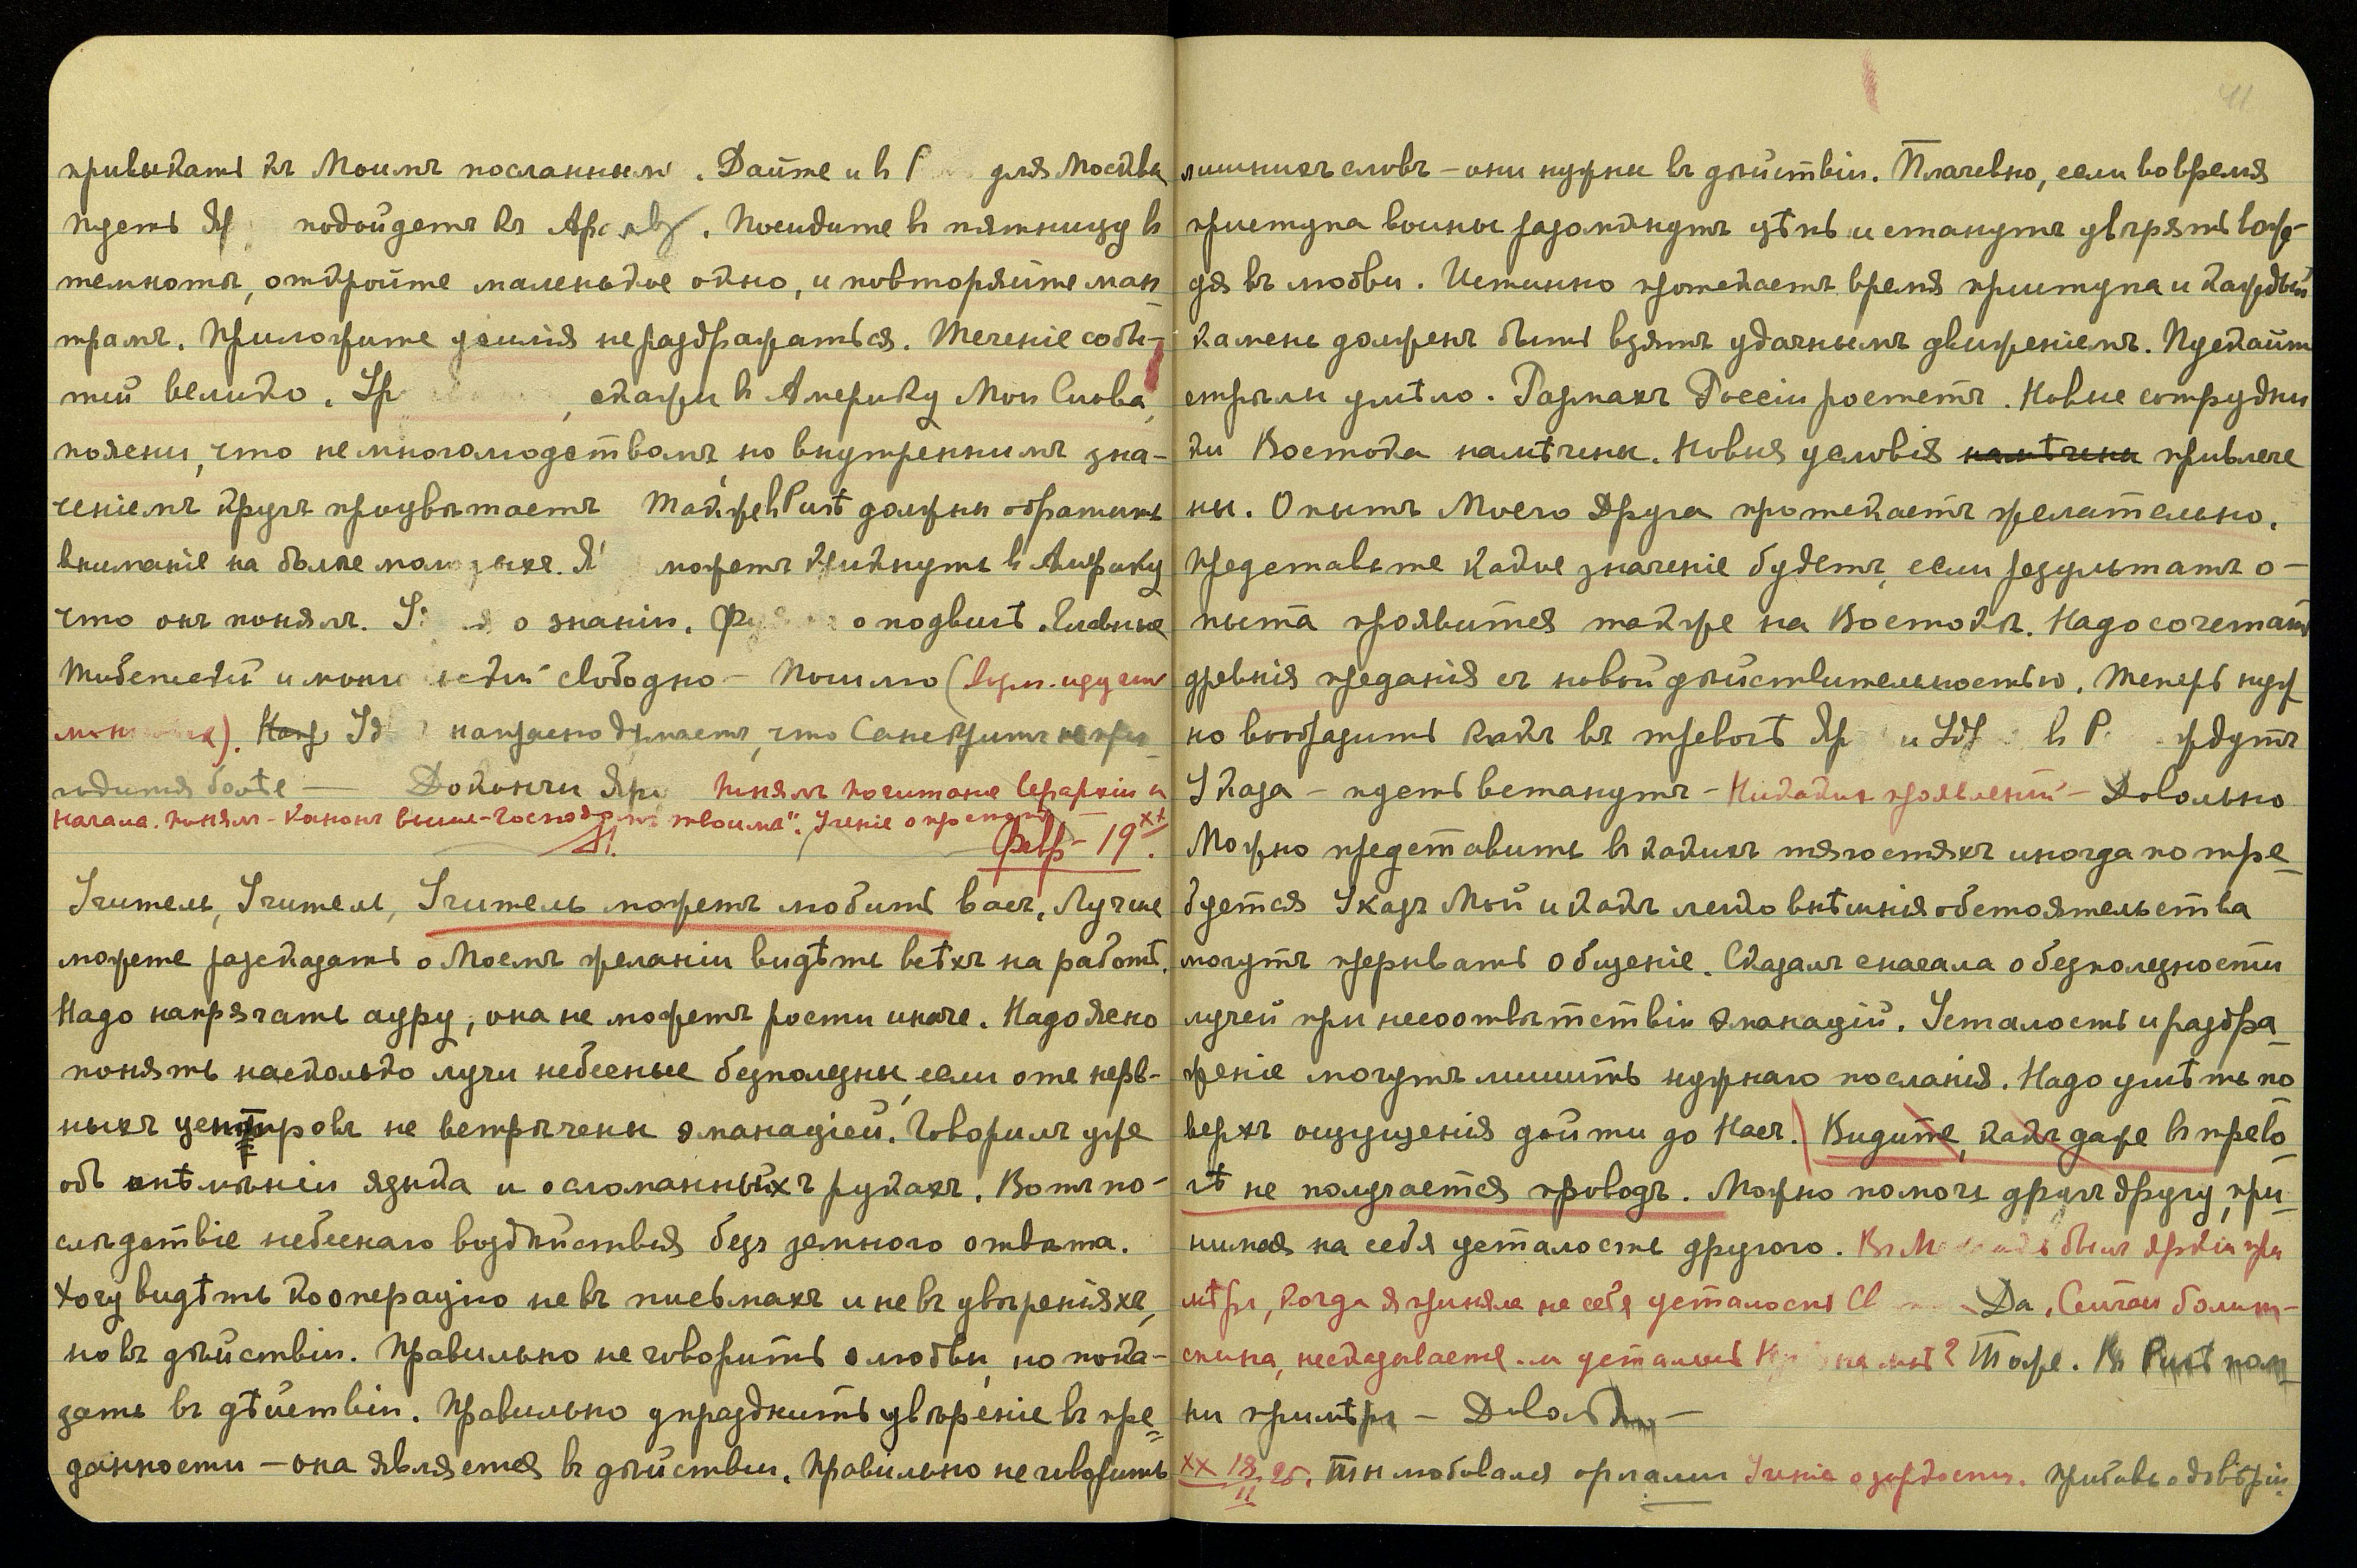 привыкать къ Моимъ посланнымъ. Дайте и в Р для Москвы
пусть Яр подойдетъ къ Посидите в пятницу в
темнотѣ, откройте маленькое окно, и повторяйте ман-
трамъ. Приложите усилія не раздражаться. Теченіе собы-
тій велико. Ур , скажи в Америку Мои Слова,
поясни, что не многолюдствомъ, но внутреннимъ зна-
ченіемъ кругъ процвѣтаетъ Также в Ригѣ должны обратить
вниманіе на болѣе молодыхъ. Я может крикнуть в Америку
что онъ понялъ. о знаніи. о подвигѣ. Главное
Тибетскій и свободно — Помимо
Уд напрасно думаетъ, что Санскритъ не при-
годится болѣе — Докончи Яр понялъ почитаніе Іерархіи и
Начала. понялъ - Канонъ выше - "Господомъ твоимъ". Ученіе о
февр - 19 xx.
Учитель, Учитель, Учитель можетъ любить васъ. Лучше
можете разсказать о Моемъ желаніи видѣть всѣхъ на работѣ.
Надо напрягать ауру, она не можетъ рости иначе. Надо ясно
понять насколько лучи небесные безполезны, если оте нерв-
ныхъ центровъ не встрѣчены эманаціей. Говорилъ уже
объ онѣмѣніи языка и о сломанныхъ рукахъ. Вотъ по-
слѣдствіе небеснаго воздѣйствія безъ земного отвѣта.
Хочу видѣть кооперацію не въ письмахъ и не въ увѣреніяхъ,
но въ дѣйствіи. Правильно не говорить о любви, но пока-
зать въ дѣйствіи. Правильно упразднить увѣреніе въ пре-
данности — она является в дѣйствіи. Правильно не говорить
41
лишнихъ словъ — они нужны въ дѣйствіи. Плачевно, если во время
приступа воины разомкнутъ цѣпь и станутъ увѣрять вож-
дя въ любви. Истинно протекаетъ время приступа и каждый
камень долженъ быть взятъ удачнымъ движеніемъ. Пускайте
стрѣлы умѣло. Размахъ Россіи ростетъ. Новые сотрудни
ки Востока намѣчены. Новыя условія намѣчены привлече
ны. Опытъ Моего Друга протекаетъ желательно.
Представьте какое значеніе будетъ, если результатъ о-
пыта проявится также на Востокѣ. Надо сочетать
древнія преданія съ новой дѣйствительностью. Теперь нуж
но вообразить какъ въ тревогѣ Яр и Уд в Р ждутъ
Указа — пусть встанутъ — Никакихъ проявленій — Довольно
Можно представить в какихъ тягостяхъ иногда потре-
буется Указъ Мой и какъ легко внѣшнія обстоятельства
могутъ прерывать общеніе. Сказалъ сначала о безполезности
лучей при несоотвѣтствіи эманацій. Усталость и раздра-
женіе могутъ лишить нужнаго посланія. Надо умѣть по
верхъ ощущенія дойти до Насъ. Видите, какъ даже в трево
гѣ не получается проводъ. Можно помочь другъ другу, при-
нимая на себя усталость другого. былъ яркій при
мѣръ, когда я приняла на себя усталость Да. Сейчасъ болитъ
спина, не сказывается ли усталость на мнѣ? Тоже. В Ригѣ пом
ни примѣръ — Довольно —
XX 18/II 25. Ты любовался орлами Ученіе о зоркости. Прибавь о довѣріи.